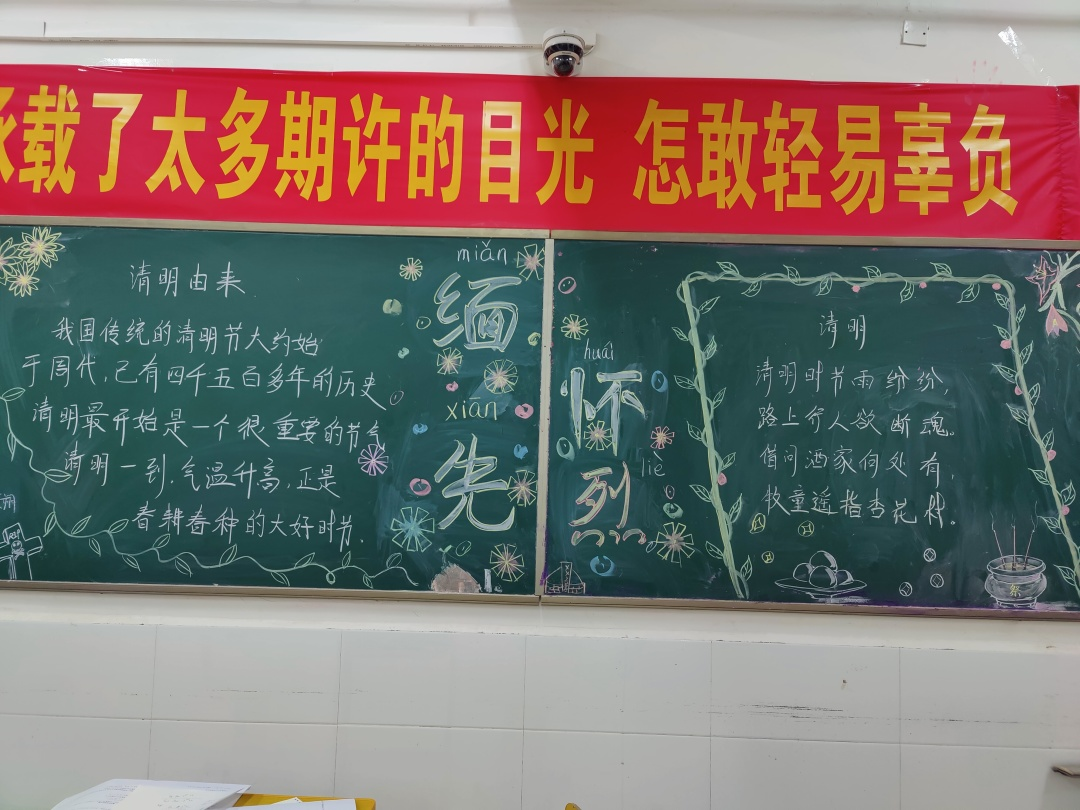 承载了太多期许的目光 怎敢轻易辜负
清明由来
我国传统的清明节大约始
于周代,已有四千五百多年的历史
清明最开始是一个很重要的节气
清明一到,气温升高,正是
春耕春种的大好时节.
miǎn
缅
xiān
先
huái
怀
liè
烈
清明
清明时节雨纷纷,
路上行人欲断魂。
借问酒家何处有,
牧童遥指杏花村。
祭